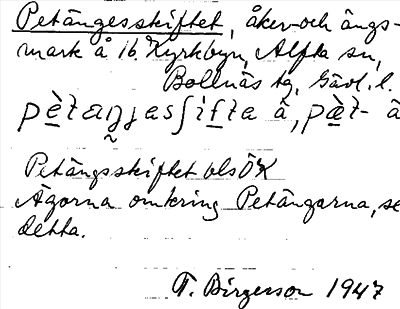 Petängesskiftet, åker- och ängs-
mark å 16. Kyrkbyn, Alfta sn,
Bollnäs tg, Gävl. l.
Petängsskiftet bls ÖK
Ägorna omkring Petängarna, se
detta.
T. Birgerson 1947